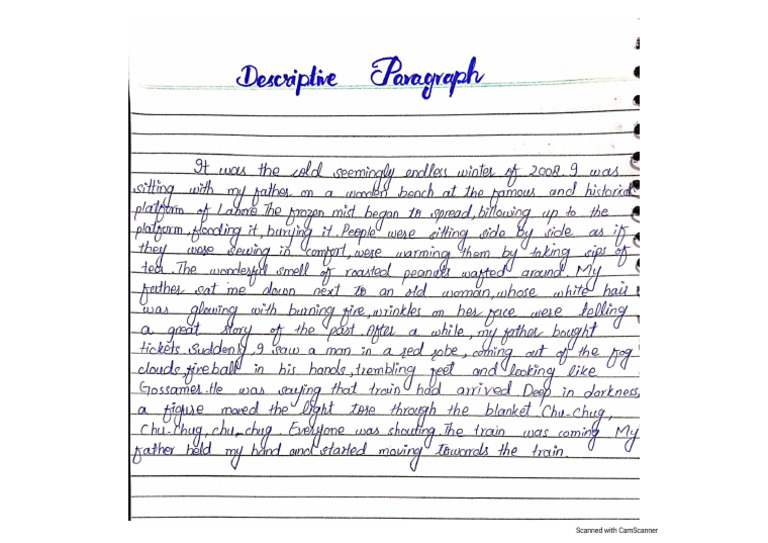 Descriptive Paragraph
It was the cold seemingly endless winter of 2008. I was
sitting with my father on a wooden bench at the famous and historical
platform of Lahore. The frozen mist began to spread, billowing up to the
platform, flooding it, burying it. People were sitting side by side as if
they were sewing in comfort, were warming them by taking sips of
tea. The wonderful smell of roasted peanuts wafted around. My
father sat me down next to an old woman, whose white hair
was glowing with burning fire, wrinkles on her face were telling
a great story of the past After a while, my father bought
tickets. Suddenly, I saw a man in a red robe, coming out of the fog
clouds, fire ball in his hands, trembling feet and looking like
Gossamer. He was saying that train had arrived Deep in darkness,
a figure moved the light tose through the blanket Chu-Chug,
Chu-Chug, chu-chug Everyone was shouting. The train was coming My
father held my hand and started moving towards the train.
Scanned with CamScanner